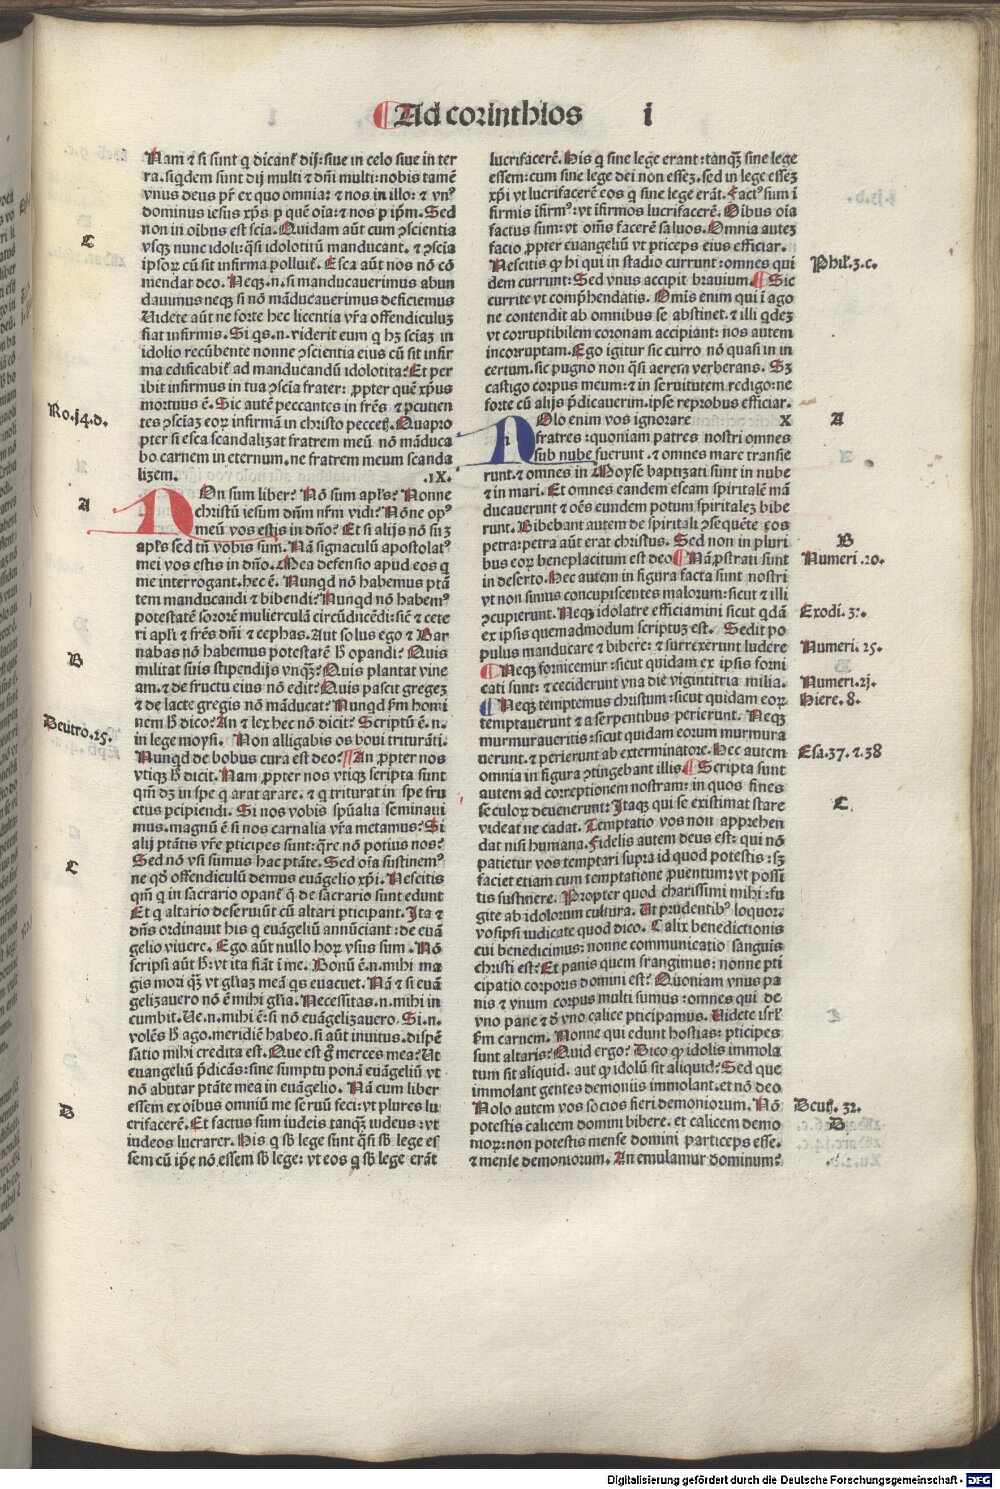 Ad corinthios i
Nam ⁊ si sunt q dicant̉ dij: siue in celo siue in ter
ra. siq̇dem sunt dij multi ⁊ dn̄i multi: nobis tamē
vnus deus pr̄ ex quo omnia: ⁊ nos in illo: ⁊ vnꝰ
dominus iesus xp̄s ꝑ quē oīa: ⁊ nos ꝑ ip̄m. Sed
non in oibus est scīa. Quidam aūt cum ꝯscientia
vsqꝫ nunc idoli: q̄si idolotitū manducant. ⁊ ꝯscīa
ipsoꝝ cū sit infirma polluit̉. Esca aūt nos nō cō
mendat deo. Neqꝫ.n. si manducauerimus abun
dauimus neqꝫ si nō māducauerimus deficiemus
Videte aūt ne forte hec licentia vr̄a offendiculuꝫ
fiat infirmis. Si qs.n. viderit eum q hꝫ sciaꝫ in
idolio recūbente nonne ꝯscientia eius cū sit infir
ma edificabit̉ ad manducandū idolotita? Et per
ibit infirmus in tua ꝯscīa frater: ꝓpter quē xp̄us
mortuus ē. Sic autē peccantes in frēs ⁊ ꝑcutien
tes ꝯsciaꝫ eoꝝ infirmā in christo peccetꝭ. Quapro
pter si esca scandalizat fratrem meū nō māduca
bo carnem in eternum. ne fratrem meum scanda
lizem. .IX.
NOn sum liber? Nō sum apl̄s? Nonne
christū iesum dn̄m nr̄m vidi? Nōne opꝰ
meū vos estis in dn̄o? Et si alijs nō suꝫ
apl̄s sed tn̄ vobis sum. Nā signaculū apostolatꝰ
mei vos estis in dn̄o. Mea defensio apud eos q
me interrogant. hec ē. Nunqd nō habemus ptā
tem manducandi ⁊ bibendi? Nunqd nō habemꝰ
potestatē sororē mulierculā circūducēdi: sic̄ ⁊ cete
ri apl̄i ⁊ frēs dn̄i ⁊ cephas. Aut solus ego ⁊ Bar
nabas nō habemus potestatē hͦ opandi? Quis
militat suis stipendijs vnqꝫ? Quis plantat vine
am. ⁊ de fructu eius nō edit? Quis pascit gregeꝫ
⁊ de lacte gregis nō māducat? Nunqd sm̄ homi
nem hͦ dico? An ⁊ lex hec nō dicit? Scriptū ē.n.
in lege moysi. Non alligabis os boui triturāti.
Nunqd de bobus cura est deo? An ꝓpter nos
vtiqꝫ hͦ dicit. Nam ꝓpter nos vtiqꝫ scripta sunt
qm̄ dꝫ in spe q arat arare. ⁊ q triturat in spe fru
ctus ꝑcipiendi. Si nos vobis spūalia seminaui
mus. magnū ē si nos carnalia vr̄a metamus? Si
alij ptātis vr̄e ꝑticipes sunt: q̄re nō potius nos?
Sed nō vsi sumus hac ptāte. Sed oīa sustinemꝰ
ne qd̄ offendiculū demus euāgelio xp̄i. Nescitis
qm̄ q in sacrario opant̉ q̄ de sacrario sunt edunt
Et q altario deseruiūt cū altari ꝑticipant. Ita ⁊
dn̄s ordinauit his q euāgeliū annūciant: de euā
gelio viuere. Ego aūt nullo hoꝝ vsus sum. Nō
scripsi aūt hͦ: vt ita fiāt ī me. Bonū ē.n. mihi ma
gis mori qꝫ vt gliaꝫ meā qs euacuet. Nā ⁊ si euā
gelizauero nō ē mihi glia. Necessitas.n. mihi in
cumbit. Ue.n. mihi ē: si nō euāgelizauero. Si.n.
volēs hͦ ago. meridiē habeo. si aūt inuitus. dispē
satio mihi credita est. Que est g̊ merces mea? Ut
euangeliū p̄dicās: sine sumptu ponā euāgeliū vt
nō abutar ptāte mea in euāgelio. Nā cum liber
essem ex oibus omniū me seruū feci: vt plures lu
crifacerē. Et factus sum iudeis tanqꝫ iudeus: vt
iudeos lucrarer. His q sb̄ lege sunt q̄si sb̄ lege es
sem cū ip̄e nō essem sb̄ lege: vt eos q sb̄ lege erāt
lucrifacerē. His q sine lege erant: tanqꝫ sine lege
essem: cum sine lege dei non esseꝫ. sed in lege esseꝫ
xp̄i vt lucrifacerē eos q sine lege erāt. Factꝰ sum ī
firmis īfirmꝰ: vt īfirmos lucrifacerē. Oibus oīa
factus sum: vt om̄s facerē saluos. Omnia auteꝫ
facio ꝓpter euangeliū vt ꝑticeps eius efficiar.
Nescitis ꝙ hi qui in stadio currunt: omnes qui
dem currunt: Sed vnus accipit brauium. Sic
currite vt comp̄hendatis. Omīs enim qui ī ago
ne contendit ab omnibus se abstinet. ⁊ illi q̇deꝫ
vt corruptibilem coronam accipiant: nos autem
incorruptam. Ego igitur sic curro nō quasi in in
certum. sic pugno non q̄si aerem verberans. Sꝫ
castigo corpus meum: ⁊ in seruitutem redigo: ne
forte cū alijs p̄dicauerim. ipse reprobus efficiar.
NOlo enim vos ignorare X
fratres: quoniam patres nostri omnes
sub nube fuerunt. ⁊ omnes mare transie
runt. ⁊ omnes in Moyse baptizati sunt in nube
⁊ in mari. Et omnes eandem escam spiritalē mā
ducauerunt ⁊ oēs eundem potum spiritaleꝫ bibe
runt. Bibebant autem de spiritali ꝯsequēte eos
petra: petra aūt erat christus. Sed non in pluri
bus eoꝝ beneplacitum est deo Nā ꝓstrati sunt
in deserto. Hec autem in figura facta sunt nostri
vt non simus concupiscentes malorum: sicut ⁊ illi
ꝯcupierunt. Neqꝫ idolatre efficiamini sicut qdā
ex ipsis quemadmodum scriptuꝫ est. Sedit po
pulus manducare ⁊ bibere: ⁊ surrexerunt ludere
Neqꝫ fornicemur: sicut quidam ex ipsis forni
cati sunt: ⁊ ceciderunt vna die vigintitria milia.
Neqꝫ temptemus christum: sicut quidam eoꝝ
temptauerunt ⁊ a serpentibus perierunt. Neqꝫ
murmuraueritis: sicut quidam eorum murmura
uerunt. ⁊ perierunt ab exterminatore. Hec autem
omnia in figura ꝯtingebant illis. Scripta sunt
autem ad correptionem nostram: in quos fines
seculoꝝ deuenerunt: Itaqꝫ qui se existimat stare
videat ne cadat. Temptatio vos non apprehen
dat nisi humana. Fidelis autem deus est: qui nō
patietur vos temptari supra id quod potestis: sꝫ
faciet etiam cum temptatione ꝓuentum: vt possi
tis sustinere. Propter quod charissimi mihi: fu
gite ab idolorum cultura. Ut prudentibꝰ loquor.
vosipsi iudicate quod dico. Calix benedictionis
cui benedicimus: nonne communicatio sanguis
christi est? Et panis quem frangimus: nonne pti
cipatio corporis domini est? Quoniam vnus pa
nis ⁊ vnum corpus multi sumus: omnes qui de
vno pane ⁊ d̄ vno calice ꝑticipamus. Videte isrl̄
sm̄ carnem. Nonne qui edunt hostias: ꝑticipes
sunt altaris? Quid ergo? Dico ꝙ idolis immola
tum sit aliquid. aut ꝙ idolū sit aliquid? Sed que
immolant gentes demoniis immolant. et nō deo
Nolo autem vos socios fieri demoniorum. Nō
potestis calicem domini bibere. et calicem demo
moꝝ: non potestis mense domini particeps esse.
⁊ mense demoniorum. An emulamur dominum?
C
Ro.j4.d.
A
B
Deutro.25.
C
D
Phil̉.3.c.
A
B
Numeri.20.
Exodi.3:.
Numeri.25.
Numeri.2j.
Hiere.8.
Esa.37.⁊.38
C
Deut̉.32.
D
Digitalisierung gefördert durch die Deutsche Forschungsgemeinschaft - DFG